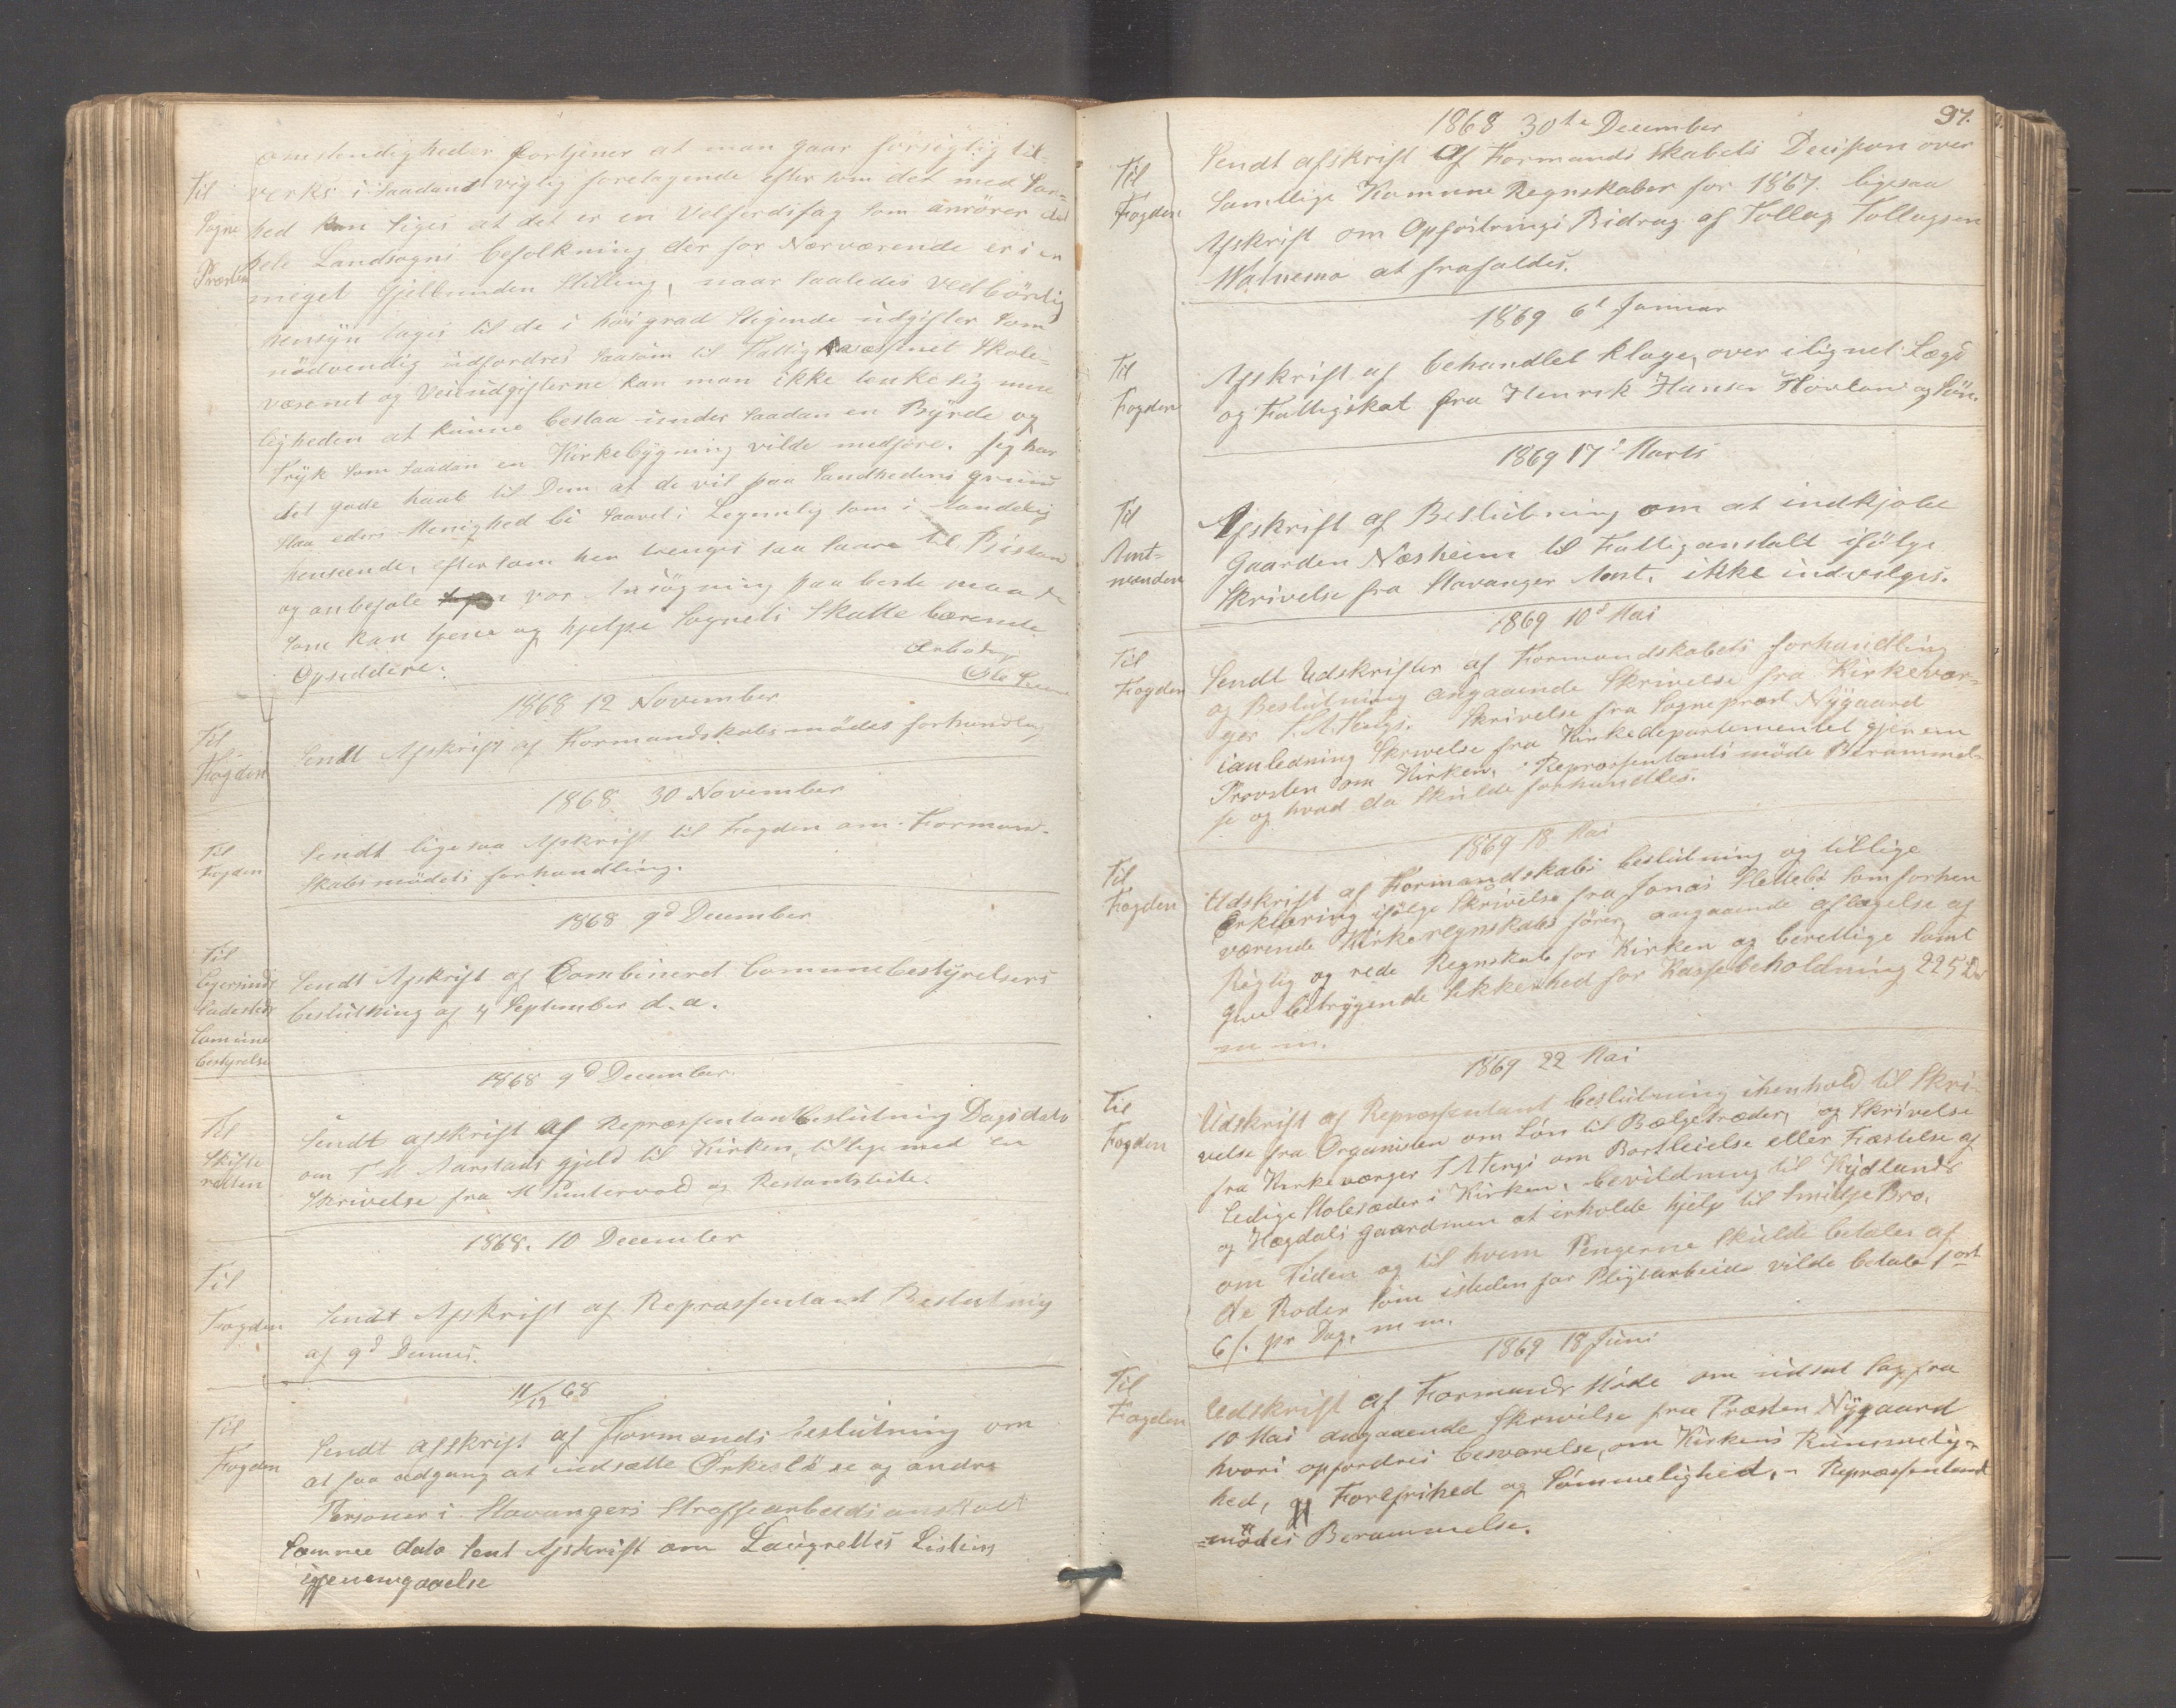 omstendigheder fortjener at man gaar forsigtig til-
Til
Sogne
Præsten
verks i saadant vigtig foretagende efter som det med San=
hed kan siges at det er en Velferdsfag som anrører det
hele Landsogns befolkning der for Nærværende er i en
meget gjelbunden Stilling, naar saaledes vedbörlig
hensyn tages til de i høi grad stigende udgifter som
nödvendig udfordres saasom til Fattigvæssenet Skole-
væsenet og Veiudgifterne kan man ikke tenke sig mue
ligheden at kunne bestaa under saadan en Byrde og
Tryk som saadan en Kirkebygning vilde medføre. Jeg har
det gode haab til Dem at de vil paa Sandhedens grund
staa eders Menighed bi saavel i Legemlig som i Aandelig
henseende, efter som her trenges saa saare til Bistand
og anbefale vor Ansögning paa beste maade
som kan tjene og hjelpe Sognets Skatte bærende
Opsiddere.
Arbödigst
Ole
1868 12 November
Til
Fogden
Sendt Afskrift af Formandskabsmödes forhandling
1868 30 November
Til
Fogden
Sendt ligesaa Afskrift til Fogden om Forman-
skabsmödets forhandling.
1868 9d December
Til
Egersunds
Ladesteds
Comune
bestyrelse
Sendt Afskrift af Combineret Comunebestyrelsers
beslutning af 4 September d.a.
1868 9d December
Til
Skifte
retten
Sendt afskrift af Repræssentantbeslutning Dagsdato
om T M Aarstads gjeld til Kirken, tillige med en
Skrivelse fra M Puntervold og Restantsliste.
1868. 10 December
Til
Fogden
Sendt Afskrift af Repræssentant Beslutning
af 9d Dennes.
11/12 68
Til
Fogden
Sendt afskrift af Formands beslutning om
at faa adgang at indsætte Örkeslöse og andre
Personer i Stavangers Straffearbeidsanstalt
Samme dato sent Afskrift om Laugrettes Listens
igjenemgaaelse
97.
1868 30te December
Til
Fogden
Sendt afskrift af Formandsskabets Decision over
Samtlige Komune Regnskaber for 1867. ligesaa
Afskrift om Opfostrings Bidrag af Tollag Tollagsen
Watnemo at frafaldes.
1869 6t Januar
Til
Fogden
Afskrift af behandlet klage, over ilignet Lægs
og Fattigskat fra Henrik Hansen Hovland og Sön.
1869 17d Marts
Til
Amt-
manden
Afskrift af Beslutning om at indkjøbe
Gaarden Næsheim til Fattiganstalt ifölge
Skrivelse fra Stavanger Amt. ikke indvilges.
1869 10d Mai
Til
Fogden
Sendt Udskrifter af Formandskabets forhandling
og Beslutning angaaende Skrivelse fra Kirkevær-
ger Skrivelse fra Sogneprest Nygaard
ianledning Skrivelse fra Kirkedepartementet gjenem
Provsten om Kirken. Repræssentants möde Berammel-
se og hvad da skulde forhandles.
1869 18 Mai
Til
Fogden
Udskrift af Formandskabs beslutning og tillige
Erklæring ifölge Skrivelse fra Jonas Slettebö som forhen
værende Kirkeregnskabs förer, angaaende aflægelse af
Rigtig og rede Regnskab for Kirken og berettige samt
give betryggende sikkerhed for Kassebeholdning 225 Dr
m m.
1869 22 Mai
Til
Fogden
Udskrift af Repræssentant beslutning ihenhold til Skri-
velse fra Organisten om Lön til Bælgetræder, og Skrivelse
fra Kirkeværger om Bortleielse eller Fæstelse af
Ledige Stolesæder i Kirken. bevildning til Kydlands
og Hægdals gaardmen at erholde hjelp til Bro.
om Tiden og til hvem Pengerne skulde betales af
de Roder som isteden for Pligtarbeide vilde betale 1 ort
6 s. pr Dag. m m.
1869 18 Juni
Til
Fogden
Udskrift af Formands Möde om udsat Sag fra
10 Mai angaaende Skrivelse fra Præsten Nygaard
hvori opfordres besvarelse, om Kirkens Rummelig-
hed, og Forefrihed og Sömmelighed, - Repræssentant
=mödes Berammelse.